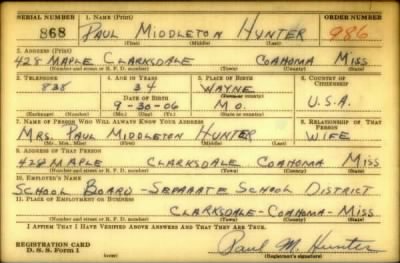 SERIAL NUMBER 1. NAME (Print) ORDER NUMBER
868 PAUL MIDDLETON HUNTER 986
(First) (Middle) (Last)
2. ADDRESS (Print)
428 MAPLE CLARKSDALE COAHOMA MISS
(Number and street or R. F. D. number) (Town) (County) (State)
3. TELEPHONE 4. AGE IN YEARS 5. PLACE OF BIRTH 6. COUNTRY OF CITIZENSHIP
838 34 WAYNE
DATE OF BIRTH (Town or county) U.S.A.
9-30-06 MO.
(Exchange) (Number) (Mo.) (Day) (Yr.) (State or country)
7. NAME OF PERSON WHO WILL ALWAYS KNOW YOUR ADDRESS 8. RELATIONSHIP OF THAT PERSON
MRS. PAUL MIDDLETON HUNTER WIFE
(Mr., Mrs., Miss) (First) (Middle) (Last)
9. ADDRESS OF THAT PERSON
428 MAPLE CLARKSDALE COAHOMA MISS
(Number and street or R. F. D. number) (Town) (County) (State)
10. EMPLOYER'S NAME
SCHOOL BOARD - SEPARATE SCHOOL DISTRICT
11. PLACE OF EMPLOYMENT OR BUSINESS
CLARKSDALE - COAHOMA - MISS
(Number and street or R. F. D. number) (Town) (County) (State)
I AFFIRM THAT I HAVE VERIFIED ABOVE ANSWERS AND THAT THEY ARE TRUE.
REGISTRATION CARD
D. S. S. Form 1 (over) Paul M. Hunter
(Registrant's signature)